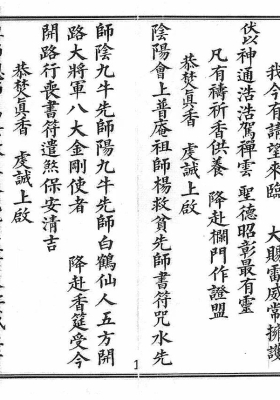 我今有請望來臨 大賜雷威常擁護
伏以神通浩浩駕禪雲 聖德昭彰最有靈
凡有禱祈香供養 降赴攔門作證盟
恭焚真香 虔誠上啟
陰陽會上普庵祖師楊救貧先師書符咒水先
師陰九牛先師陽九牛先師白鶴仙人五方開
路大將軍八大金剛使者 降赴香筵受今
開路行喪書符遣煞保安清吉
恭焚真香 虔誠上啟
1